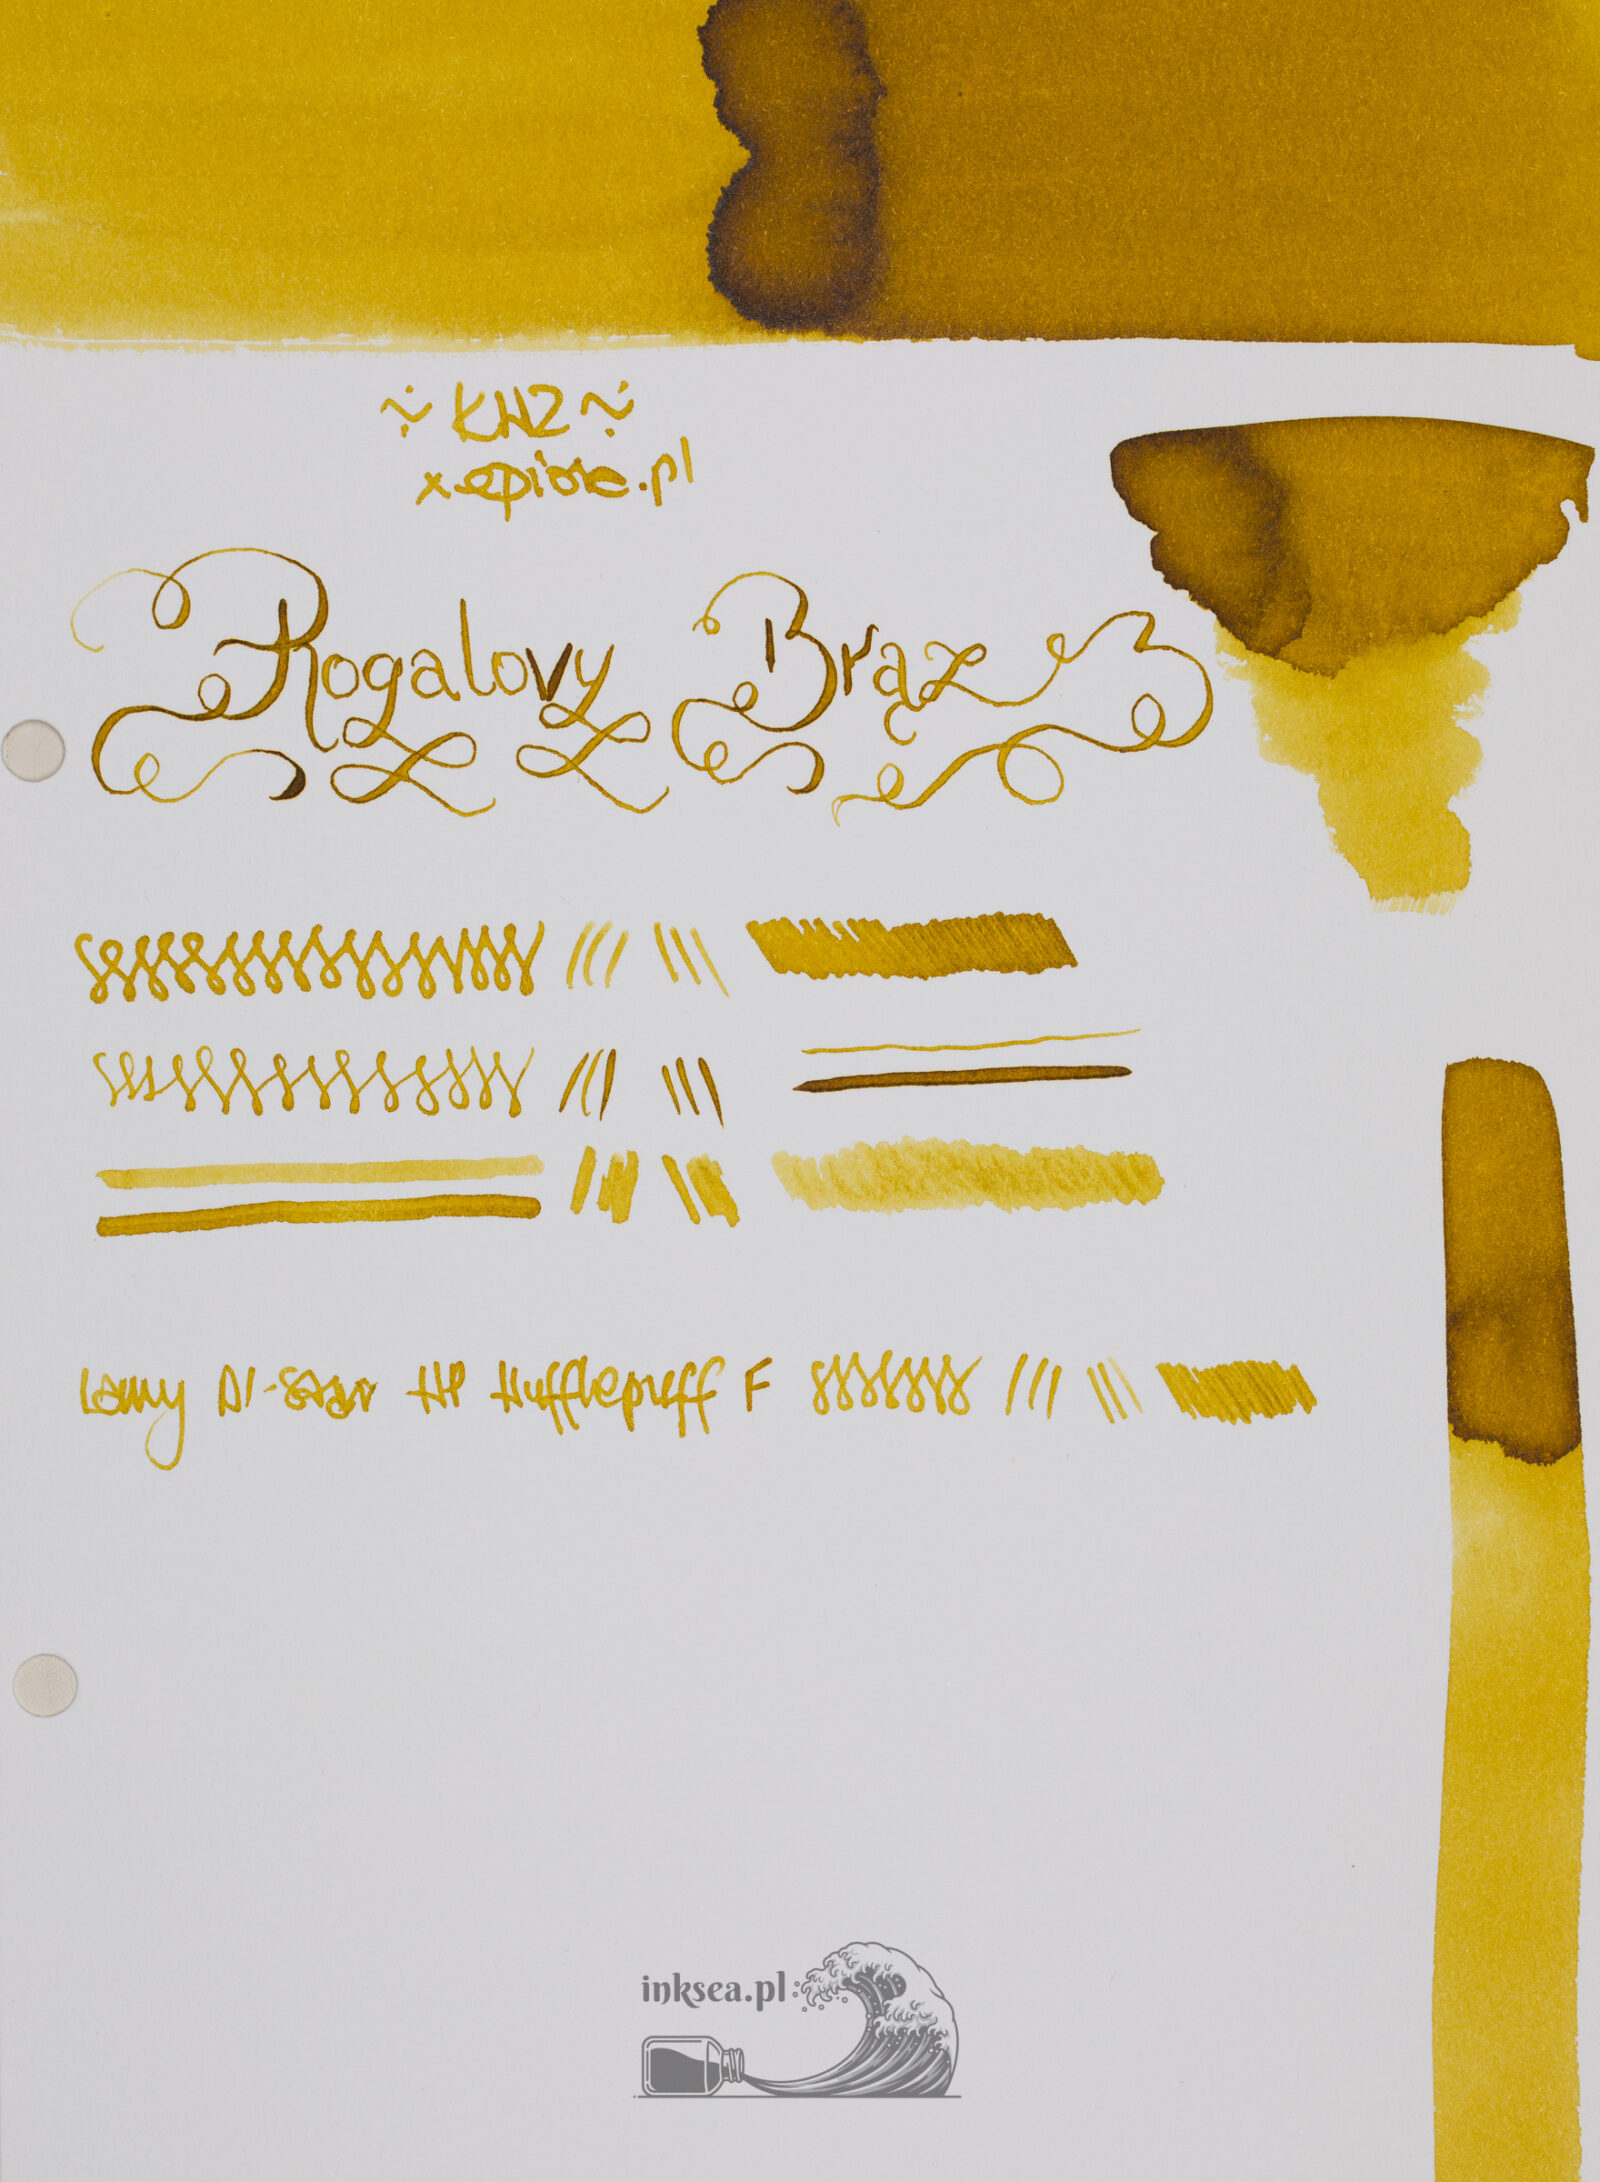 ~ KWZ ~
x epióre.pl
Rogalovy Brąz
Lamy Al-Star HP Hufflepuff F
inksea.pl